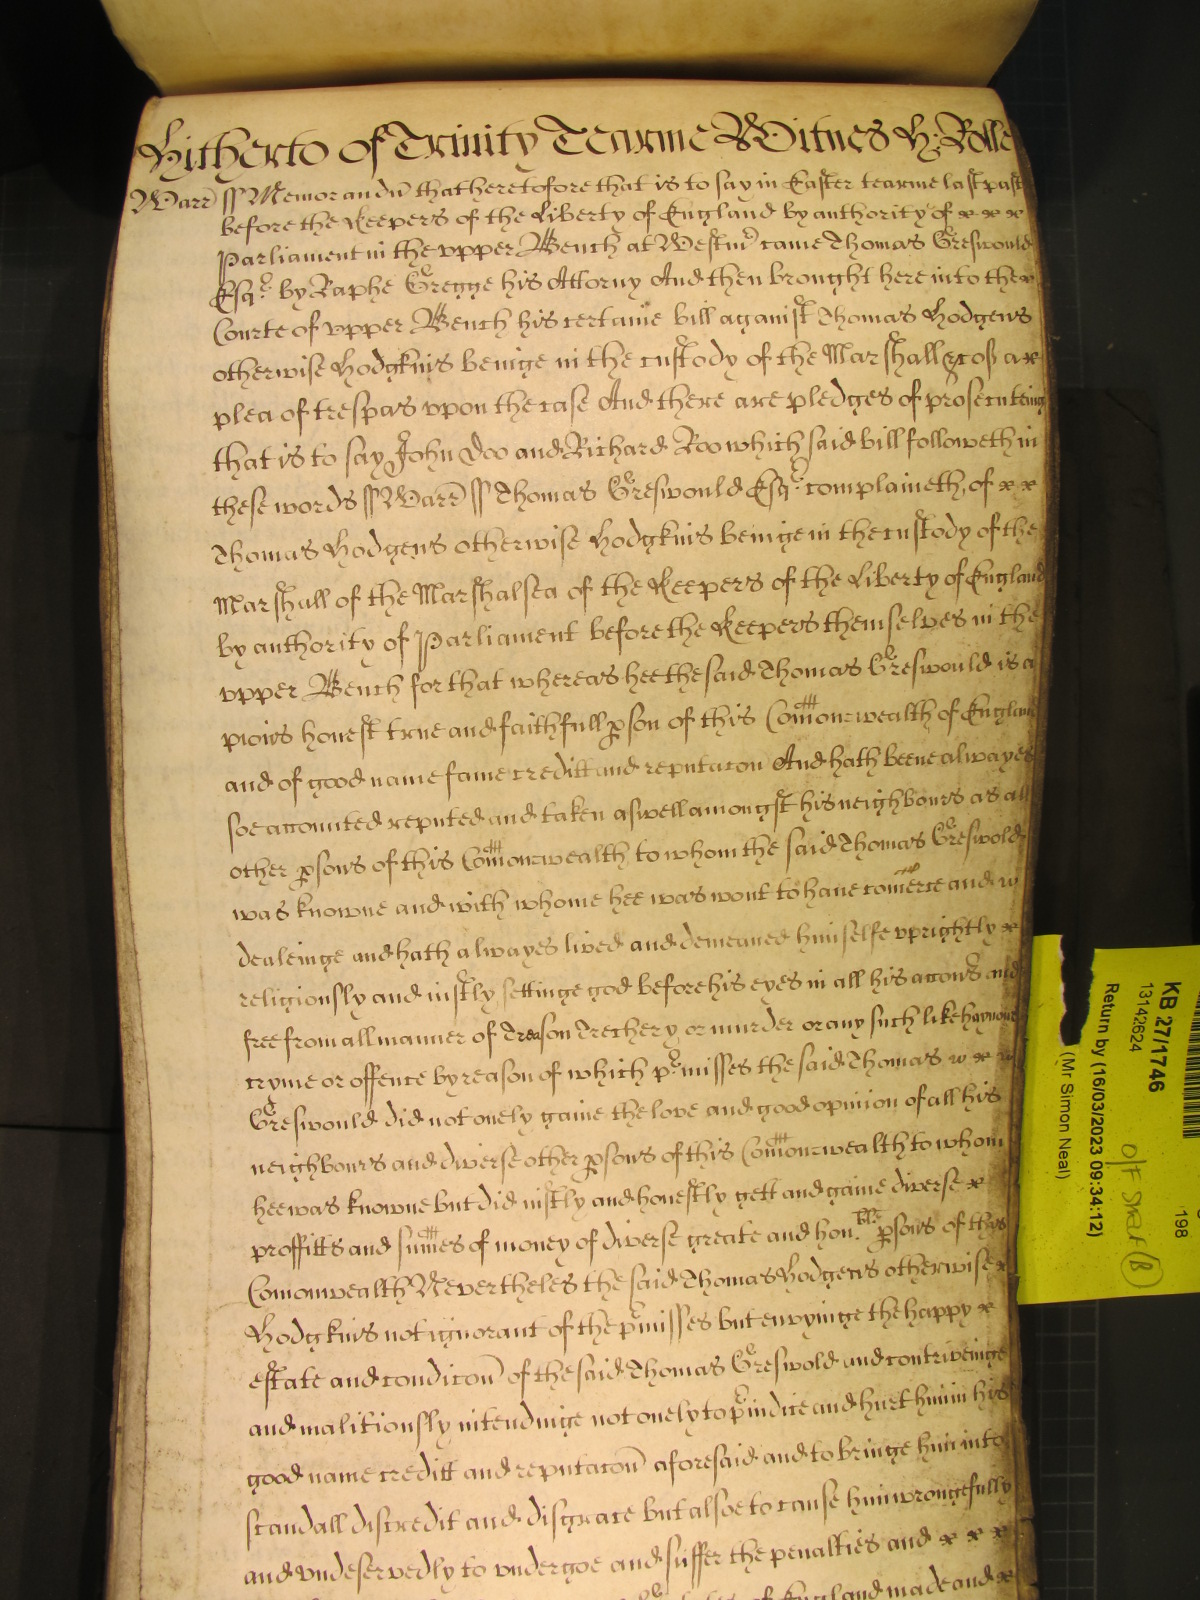 Hitherto of Trinity Tearme Witnes H: Rolle
Warr ss Memorandu that heretofore that is to say in Easter tearme last past
before the Keepers of the Liberty of England by authority of x x x
Parliament in the vpper Bench at Westmr came Thomas Greswould
Esqr. by Raphe Gregge his Attorny And then brought here into the x
Courte of vpper Bench his certaine bill against Thomas Hodgens
otherwise Hodgkins beinge in the custody of the Marshall &c of a x
plea of trespas vpon the case And there are pledges of prosecuteing
that is to say John Doo and Richard Roo which said bill followeth in
these words ss Warr ss Thomas Greswould Esqr. complaineth of x x
Thomas Hodgens otherwise Hodgkins beinge in the custody of the
Marshall of the Marshalsea of the Keepers of the Liberty of England
by authority of Parliament before the Keepers themselves in the
vpper Bench for that whereas hee the said Thomas Greswould is a
pious honest true and faithfull pson of this Comonwealth of England
and of good name fame creditt and reputacon And hath beene alwayes
soe accounted reputed and taken aswell amongst his neighbours as all
other psons of this Comonwealth to whom the said Thomas Greswold
was knowne and with whome hee was wont to haue comerce and
dealeinge and hath alwayes lived and demeaned himselfe vprightly x
religionsly and iustly settinge god before his eyes in all his accons and
free from all manner of Treason Trechery or murder or any such like haynous
cryme or offence by reason of which pr.misses the said Thomas x x x
Greswould did not onely gaine the love and good opinion of all his
neighbours and diverse other psons of this Comonwealth to whom
hee was knowne but did iustly and honestly gett and gaine diverse x
proffitts and sumes of money of diverse greate and hon.ble psons of this
Comonwealth Nevertheles the said Thomas Hodgens otherwise x
Hodgkins not ignorant of the pmisses but envyinge the happy x
estate and condicon of the said Thomas Greswold and contriveinge
and malitiously intendinge not onely to piudice and hurt him in his
good name creditt and reputacon aforesaid and to bringe him into
scandall discredit and disgrace but alsoe to cause him wrongefully
and vndeservedly to vndergoe and suffer the penalties and x x x
of England made and x
KB 27/1746
13142624
Return by (16/03/2023 09:34:12)
(Mr Simon Neal)
198
O/F Shelf (B)